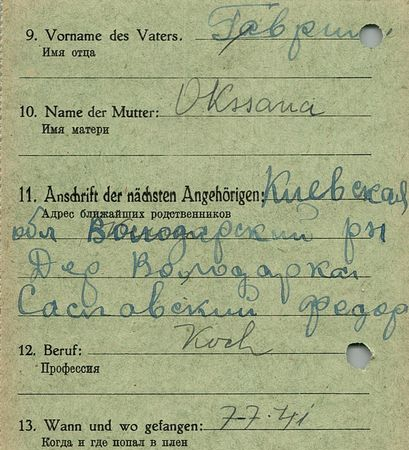 9. Vorname des Vaters. Гаврил
Имя отца
10. Name der Mutter: Okssana
Имя матери
11. Anschrift der nächsten Angehörigen: Киевская
Адрес ближайших родственников
обл Володарский рн
Дер Володарка
Саславский федор
12. Beruf: Koch
Профессия
13. Wann und wo gefangen: 7-7.41
Когда и где попал в плен